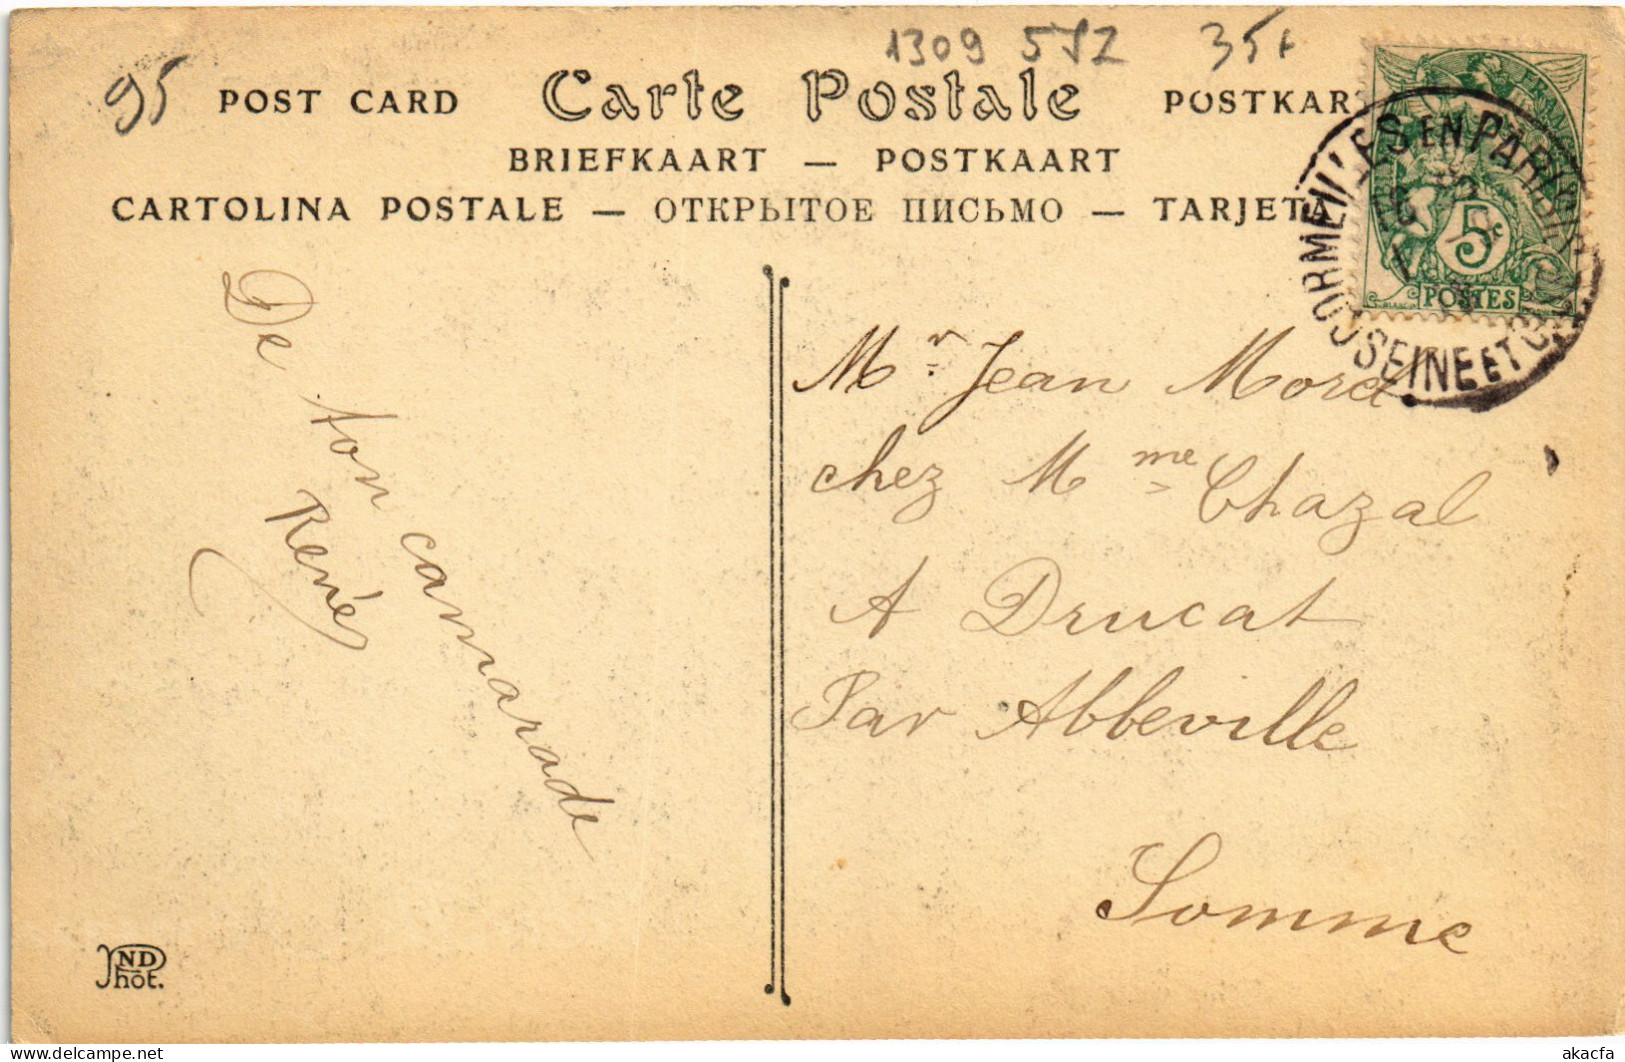 1309 5JZ 35+
95 POST CARD Carte Postale POSTKAR
BRIEFKAART — POSTKAART
CARTOLINA POSTALE — ОТКРЫТОЕ ПИСЬМО — TARJETA
CORMEILLES EN PARISIS
SEINE ET OISE
FRAN
5c
POSTES
De ton camarade
René
Mr Jean Morel
chez Mme Chazal
A Drucat
Par Abbeville
Somme
ND
Phot.
akacfa